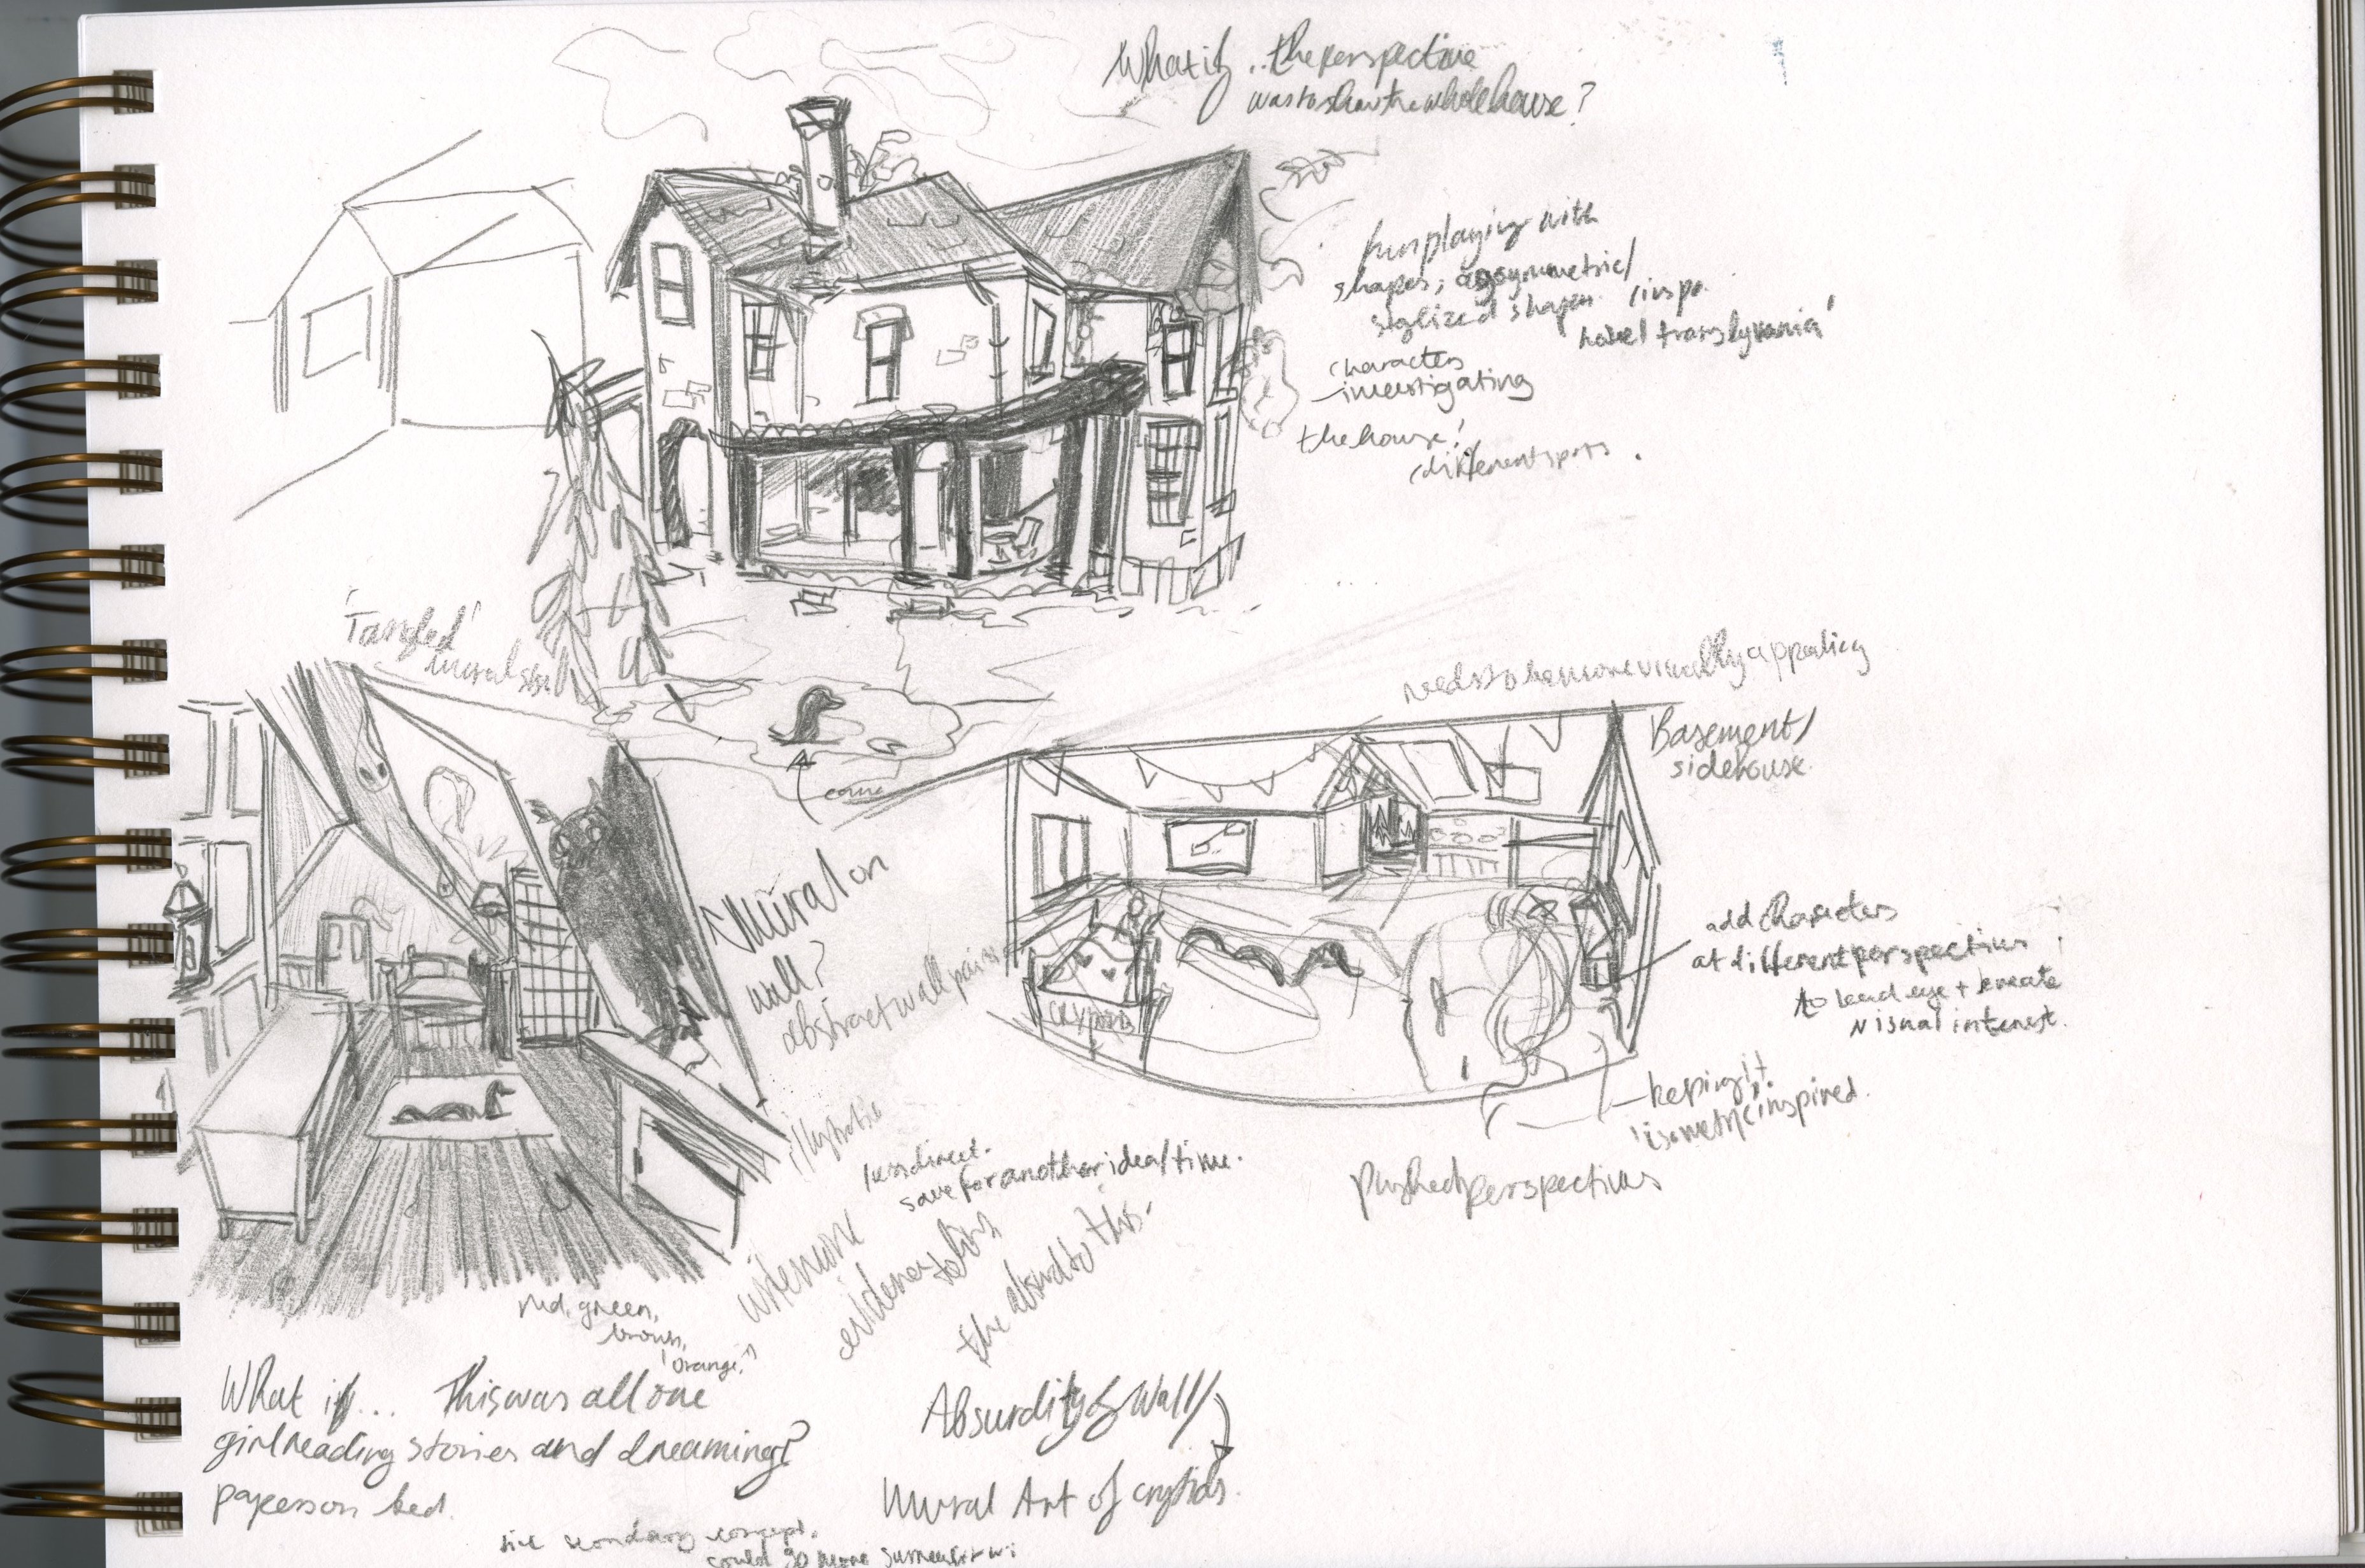 What if.. the perspective
was to show the whole house?
fun playing with
shapes, assymmetric/
stylized shapes. (inspo.
hotel translyvania'
characters
- investigating
the house!
(different spots.
'Tangled'
mural style
needs to be more visually appealing
Basement/
sidehouse.
Mural on
wall?
abstract wall pairs
add characters
at different perspectives
to lead eye + create
visual interest.
CRYPTIDS
- keeping it
'isometric inspired.
Pushed perspectives
illustrative
less direct.
save for another idea/time.
evidence
the absurd to this.
red, green,
brown,
'orange,'
What if... This was all one
girl reading stories and dreaming?
papers on bed.
Absurdity of Wall/
Mural Art of cryptids.
secondary concept.
could go more